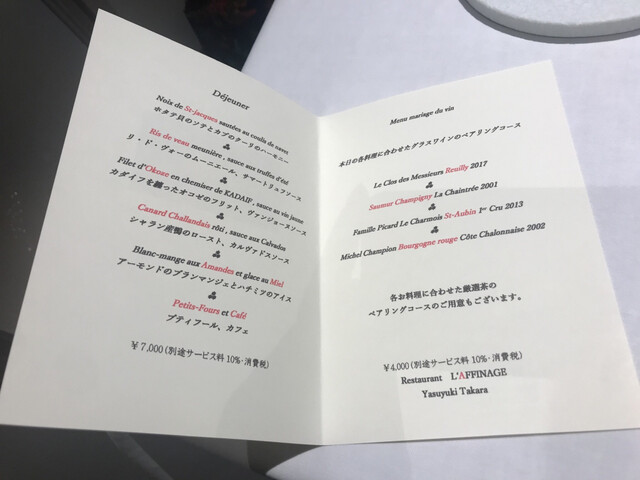 Déjeuner
Noix de St-jacques sautées au coulis de naves
ホタテ貝のソテとカブのクーリのハーモニー
Ris de veau meunière , sauce aux truffes d'été
リ・ド・ヴォーのムーニエール、サマートリュフソース
Filet d'Okoze en chemiser de KADAIF , sauce au vin jeune
カダイフを纏ったオコゼのフリット、ヴァンジョーヌソース
Canard Challandais rôti , sauce aux Calvados
シャラン産鴨のロースト、カルヴァドスソース
Blanc-mange aux Amandes et glace au Miel
アーモンドのブランマンジェとハチミツのアイス
Petits-Fours et Café
プティフール、カフェ
¥7,000（別途サービス料 10%・消費税）
Menu mariage du vin
本日の各料理に合わせたグラスワインのペアリングコース
Le Clos des Messieurs Reuilly 2017
Saumur Champigny La Chaintrée 2001
Famille Picard Le Charmois St-Aubin 1er Cru 2013
Michel Champion Bourgogne rouge Côte Chalonnaise 2002
各お料理に合わせた厳選茶の
ペアリングコースのご用意もございます。
¥4,000（別途サービス料 10%・消費税）
Restaurant L'AFFINAGE
Yasuyuki Takara